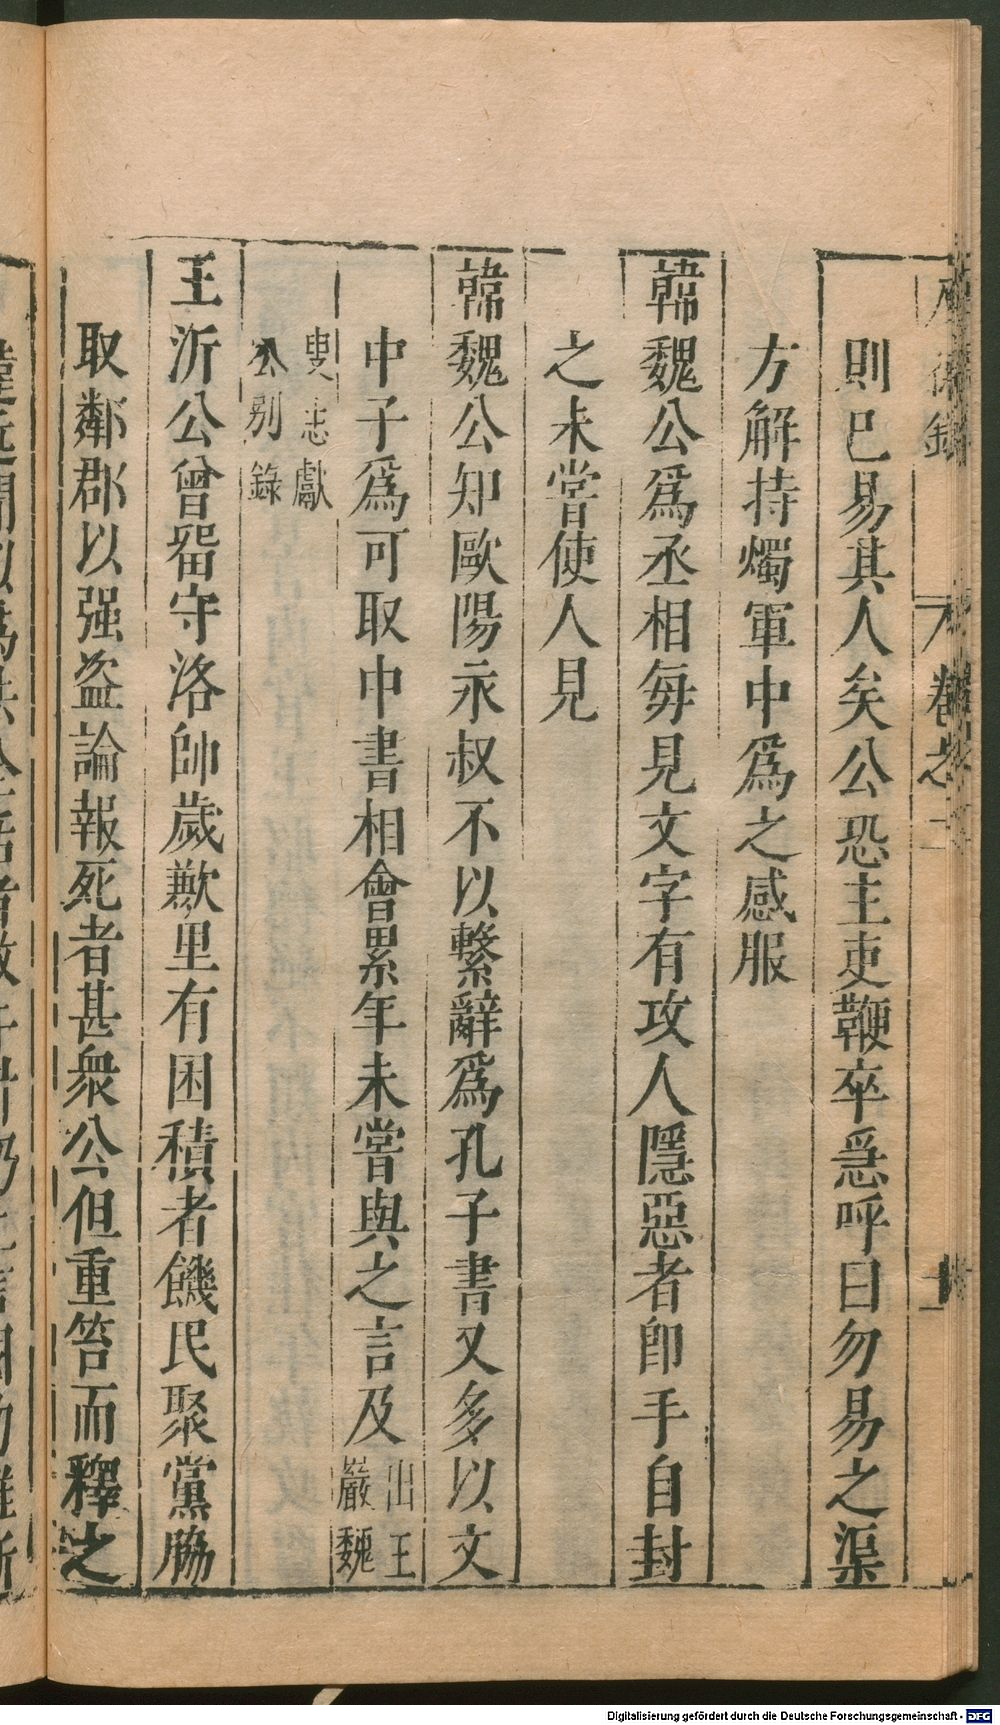 則已易其人矣公恐主吏鞭卒急呼曰勿易之渠
方解持燭軍中爲之感服
韓魏公爲丞相每見文字有攻人隱惡者卽手自封
之未嘗使人見
韓魏公知歐陽永叔不以繫辭爲孔子書又多以文
中子爲可取中書相會累年未嘗與之言及出王巖
叟忠獻魏公別錄
王沂公曾畱守洛帥歲歉里有囷積者饑民聚黨脇
取鄰郡以强盜論報死者甚衆公但重笞而釋之
卷之
Digitalisierung gefördert durch die Deutsche Forschungsgemeinschaft - DFG